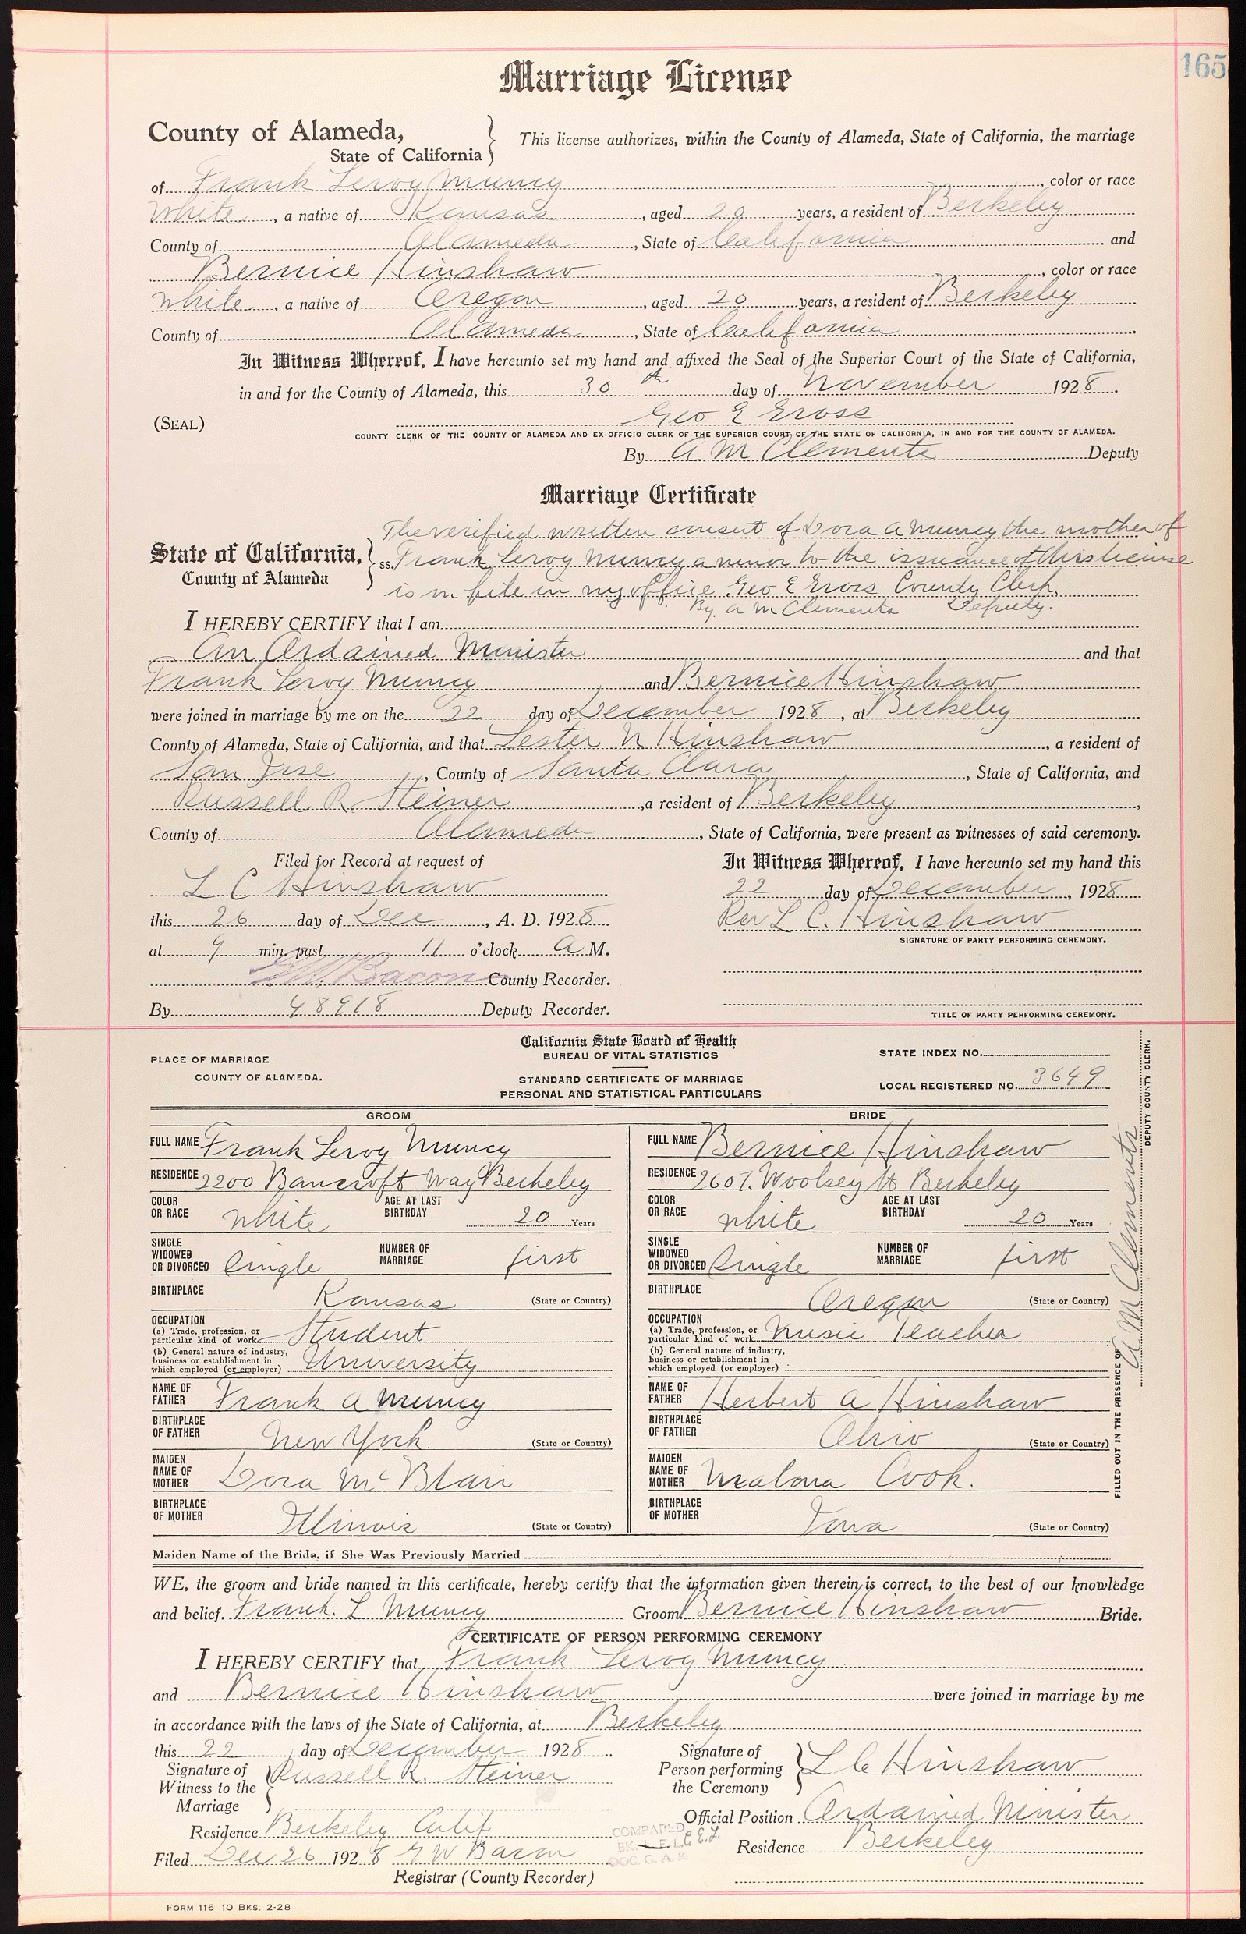 165
Marriage License
County of Alameda,
State of California
This license authorizes, within the County of Alameda, State of California, the marriage
of Frank Leroy Muncy, color or race
White, a native of Kansas, aged 20 years, a resident of Berkeley
County of Alameda, State of California and
Bernice Hinshaw, color or race
White, a native of Oregon, aged 20 years, a resident of Berkeley
County of Alameda, State of California.
In Witness Whereof, I have hereunto set my hand and affixed the Seal of the Superior Court of the State of California,
in and for the County of Alameda, this 30th day of November 1928.
(SEAL) Geo E Gross
COUNTY CLERK OF THE COUNTY OF ALAMEDA AND EX-OFFICIO CLERK OF THE SUPERIOR COURT OF THE STATE OF CALIFORNIA, IN AND FOR THE COUNTY OF ALAMEDA.
By A M Clements Deputy
Marriage Certificate
The verified written consent of Dora A Muncy the mother of
State of California, ss. Frank Leroy Muncy a minor to the issuance of this license
County of Alameda
is on file in my office. Geo E Gross County Clerk.
By A M Clements Deputy.
I HEREBY CERTIFY that I am
An Ordained Minister and that
Frank Leroy Muncy and Bernice Hinshaw
were joined in marriage by me on the 22 day of December 1928, at Berkeley
County of Alameda, State of California, and that Lester N Hinshaw, a resident of
San Jose, County of Santa Clara, State of California, and
Russell R. Steiner, a resident of Berkeley,
County of Alameda, State of California, were present as witnesses of said ceremony.
Filed for Record at request of
L C Hinshaw
this 26 day of Dec, A. D. 1928
at 9 min. past 11 o'clock A M.
G W Bacon County Recorder.
By 48918 Deputy Recorder.
In Witness Whereof, I have hereunto set my hand this
22 day of December, 1928
Rev L. C. Hinshaw
SIGNATURE OF PARTY PERFORMING CEREMONY.
TITLE OF PARTY PERFORMING CEREMONY.
PLACE OF MARRIAGE
COUNTY OF ALAMEDA.
California State Board of Health
BUREAU OF VITAL STATISTICS
STANDARD CERTIFICATE OF MARRIAGE
PERSONAL AND STATISTICAL PARTICULARS
STATE INDEX NO.
LOCAL REGISTERED NO. 3649
GROOM
FULL NAME Frank Leroy Muncy
RESIDENCE 2200 Bancroft Way Berkeley
COLOR OR RACE White AGE AT LAST BIRTHDAY 20 Years
SINGLE WIDOWED OR DIVORCED Single NUMBER OF MARRIAGE first
BIRTHPLACE Kansas (State or Country)
OCCUPATION
(a) Trade, profession, or particular kind of work Student
(b) General nature of industry, business or establishment in which employed (or employer) University
NAME OF FATHER Frank A Muncy
BIRTHPLACE OF FATHER New York (State or Country)
MAIDEN NAME OF MOTHER Dora McBlair
BIRTHPLACE OF MOTHER Illinois (State or Country)
BRIDE
FULL NAME Bernice Hinshaw
RESIDENCE 2607 Woolsey St Berkeley
COLOR OR RACE White AGE AT LAST BIRTHDAY 20 Years
SINGLE WIDOWED OR DIVORCED Single NUMBER OF MARRIAGE first
BIRTHPLACE Oregon (State or Country)
OCCUPATION
(a) Trade, profession, or particular kind of work Music Teacher
(b) General nature of industry, business or establishment in which employed (or employer)
NAME OF FATHER Herbert A Hinshaw
BIRTHPLACE OF FATHER Ohio (State or Country)
MAIDEN NAME OF MOTHER Cook.
BIRTHPLACE OF MOTHER Iowa (State or Country)
FILLED OUT IN THE PRESENCE OF A M Clements DEPUTY COUNTY CLERK.
Maiden Name of the Bride, if She Was Previously Married
WE, the groom and bride named in this certificate, hereby certify that the information given therein is correct, to the best of our knowledge
and belief. Frank. L Muncy Groom Bernice Hinshaw Bride.
CERTIFICATE OF PERSON PERFORMING CEREMONY
I HEREBY CERTIFY that Frank Leroy Muncy
and Bernice Hinshaw were joined in marriage by me
in accordance with the laws of the State of California, at Berkeley
this 22 day of December 1928
Signature of Witness to the Marriage Russell R. Steiner
Residence Berkeley Calif
Filed Dec 26 1928 G W Bacon
Registrar (County Recorder)
Signature of Person performing the Ceremony L C Hinshaw
Official Position Ordained Minister
Residence Berkeley
COMPARED
FORM 116 10 BKS. 2-28